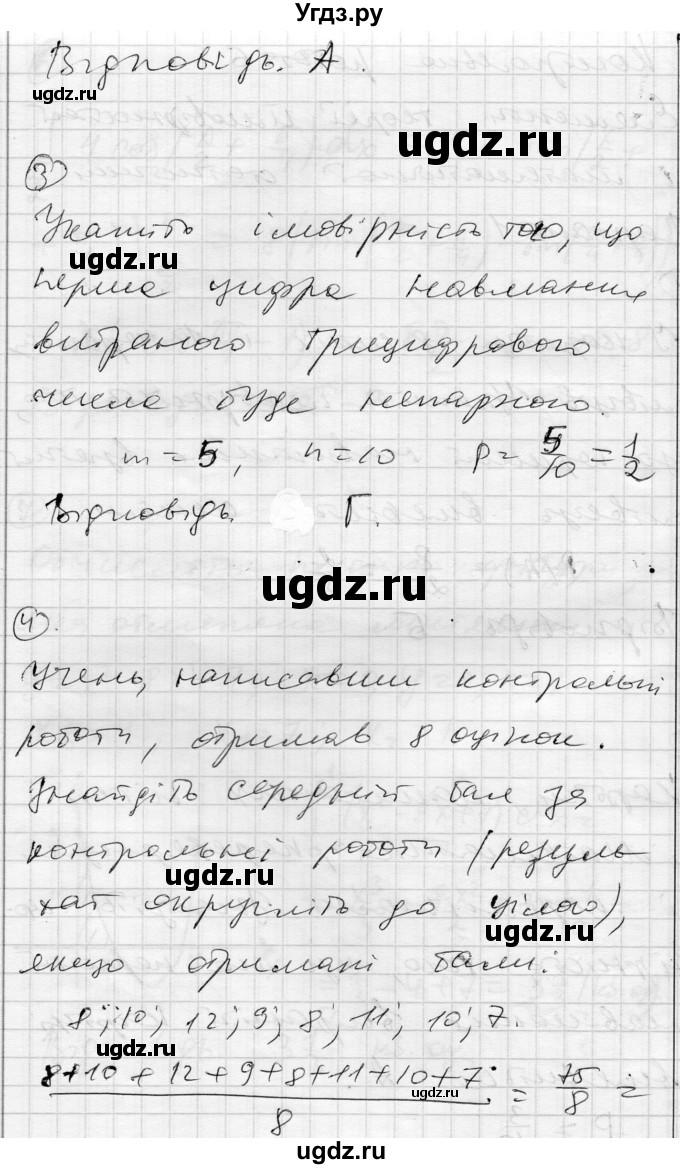 Угдз.ру
Відповідь. А.
ugdz.ru
ugdz.ru
3
Укажіть імовірність того, що
ugdz.ru
перша цифра навмання
вибраного трицифрового
числа буде непарною.
m = 5, n = 10 p = 5/10 = 1/2
Відповідь Г.
ugdz.ru
4.
Учень, написавши контрольні
роботи, отримав 8 оцінок.
Знайдіть середній бал за
контрольні роботи (резуль
ugdz.ru
тат округліть до цілого),
ugdz.ru
якщо отримані бали:
8; 10; 12; 9; 8; 11; 10; 7.
ugdz.ru
8+10+12+9+8+11+10+7 / 8 = 75/8 =
ugdz.ru
ugdz.ru